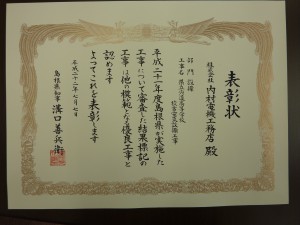 表彰状
株式会社
内村電機工務店 殿
部門 設備
工事名
校舎電気設備工事
平成二十一年度島根県が実施した
工事について審査した結果標記の
工事は他の模範となる優良工事と
認めます
よつてこれを表彰します
平成二十二年七月七日
島根県知事 溝口善兵衛